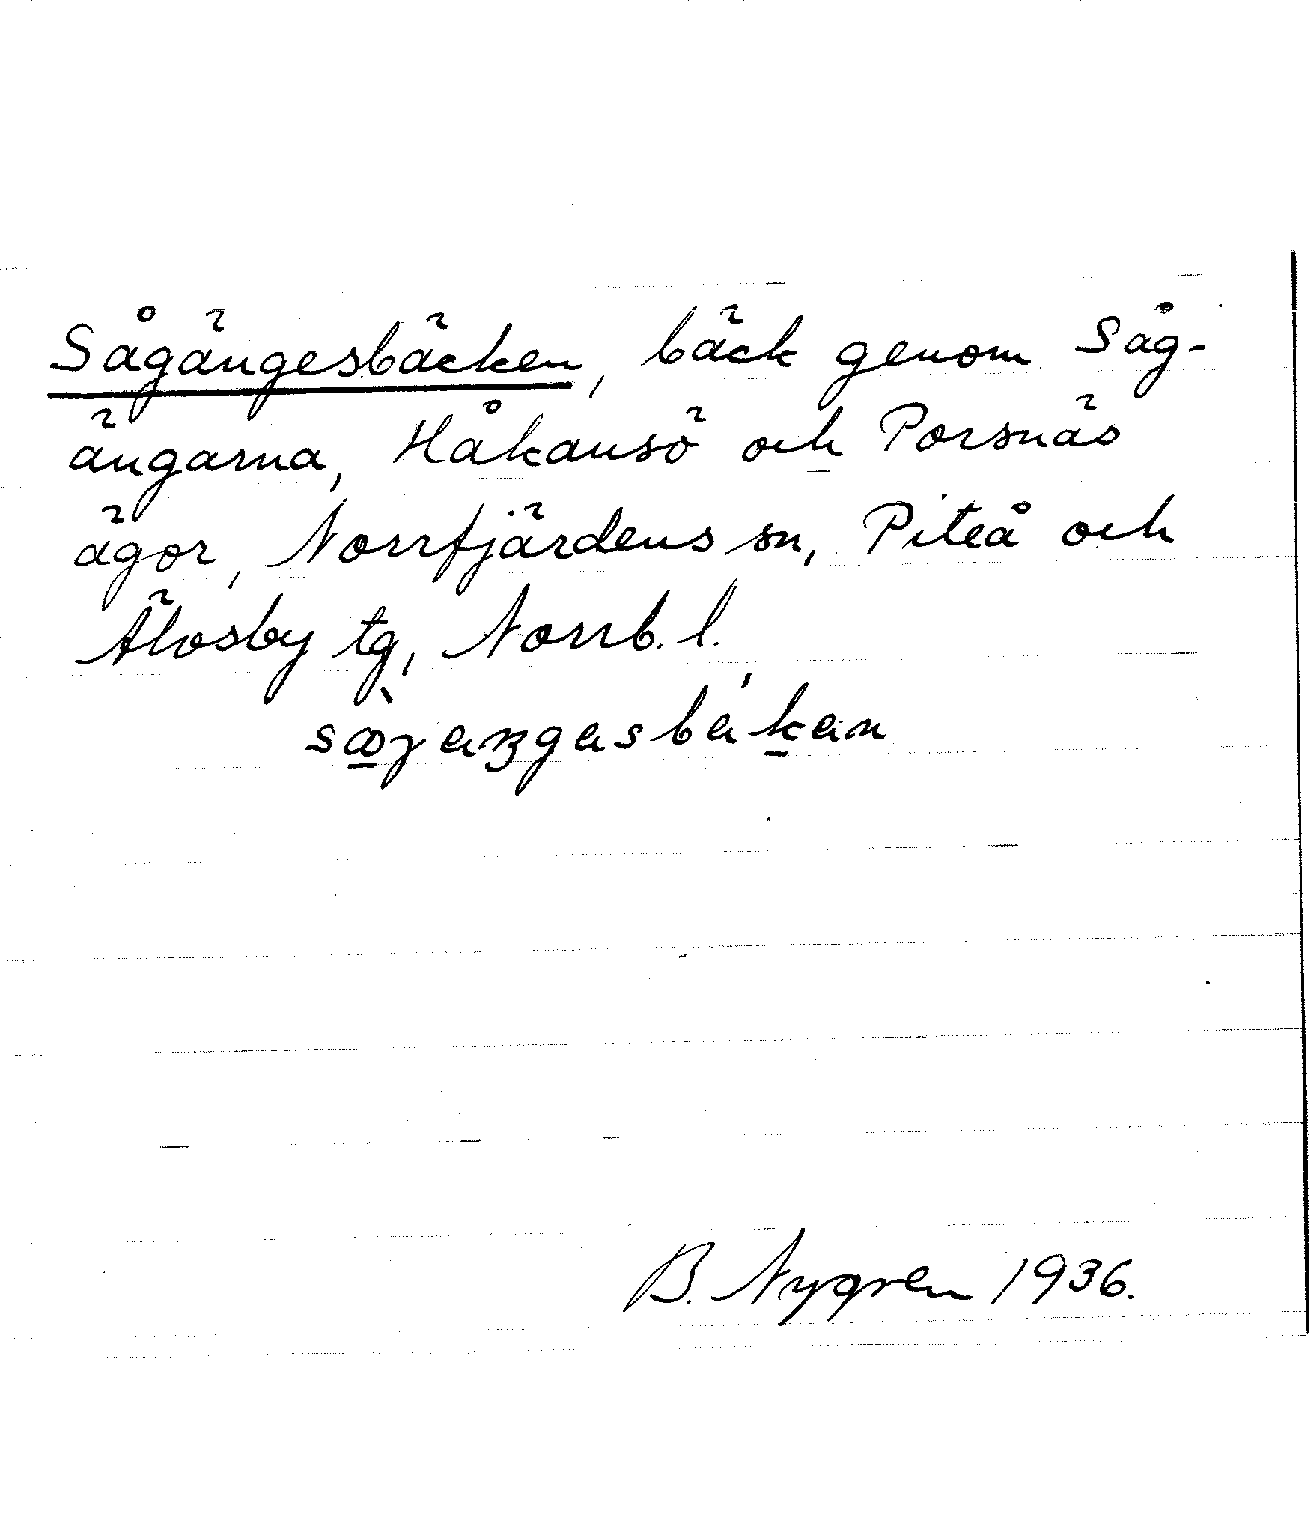 Sågängesbäcken, bäck genom Såg-
ängarna, Håkansö och Porsnäs
ägor, Norrfjärdens sn, Piteå och
Älvsby tg, Norrb. l.
B. Nygren 1936.